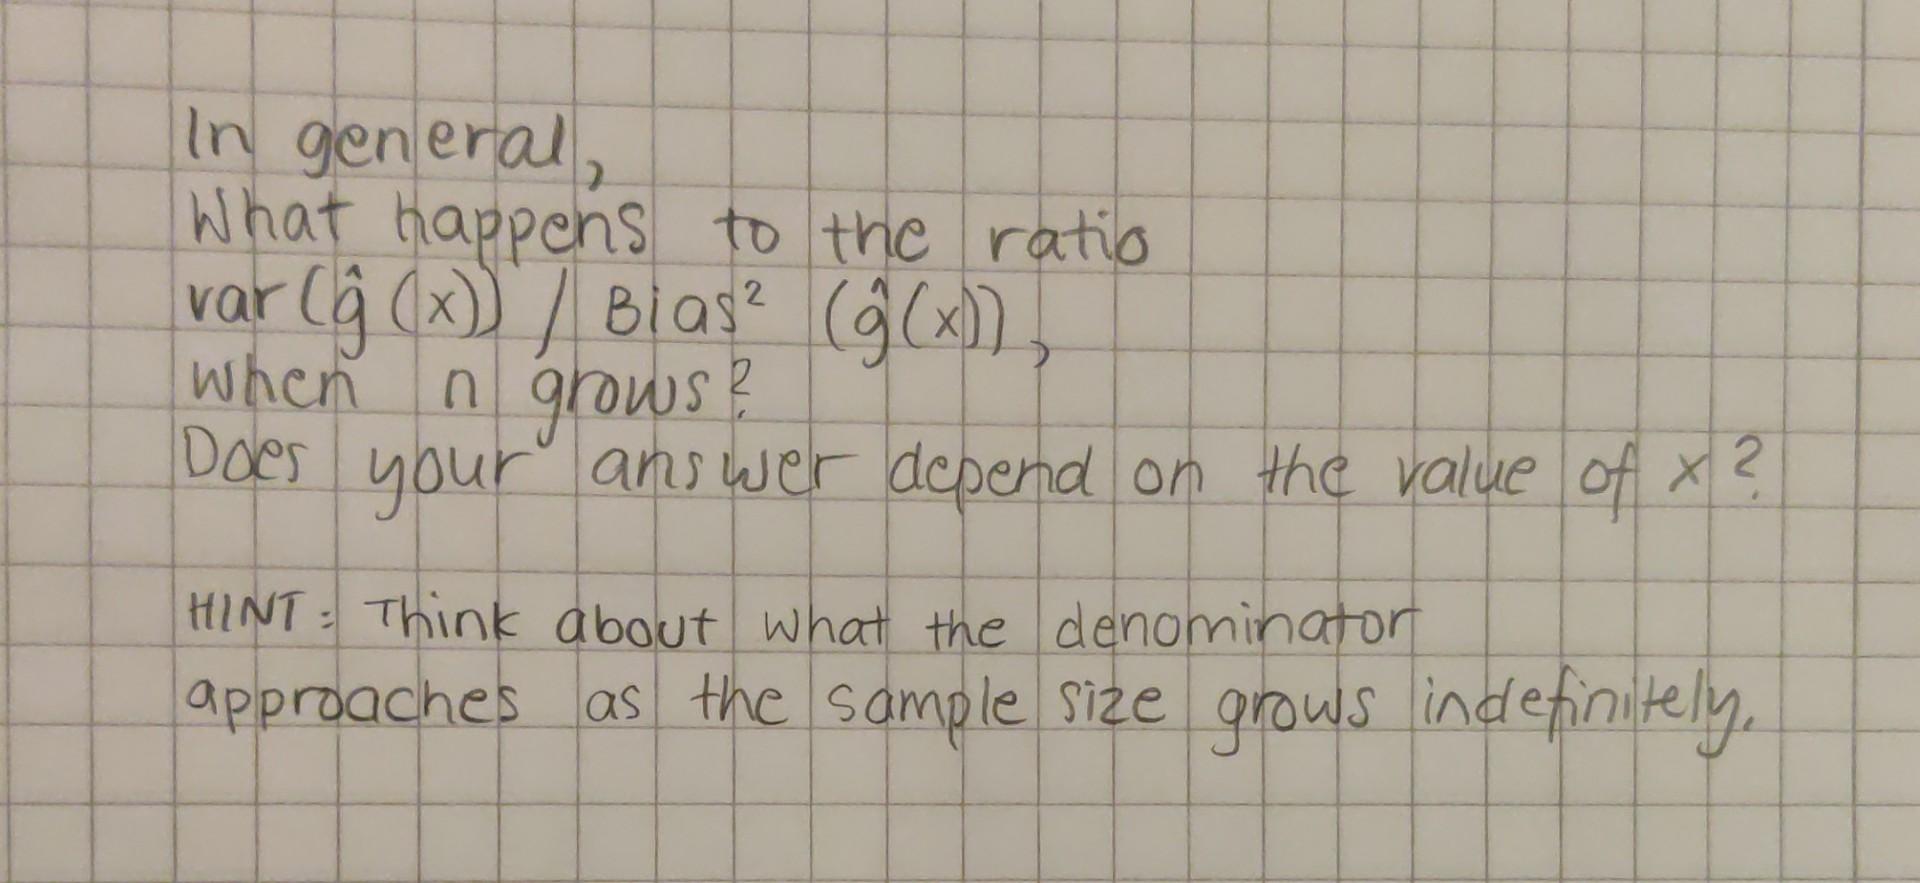 In general,
What happens to the ratio
var(ĝ(x)) / Bias² (ĝ(x)),
when n grows?
Does your answer depend on the value of x?
HINT: Think about what the denominator
approaches as the sample size grows indefinitely.